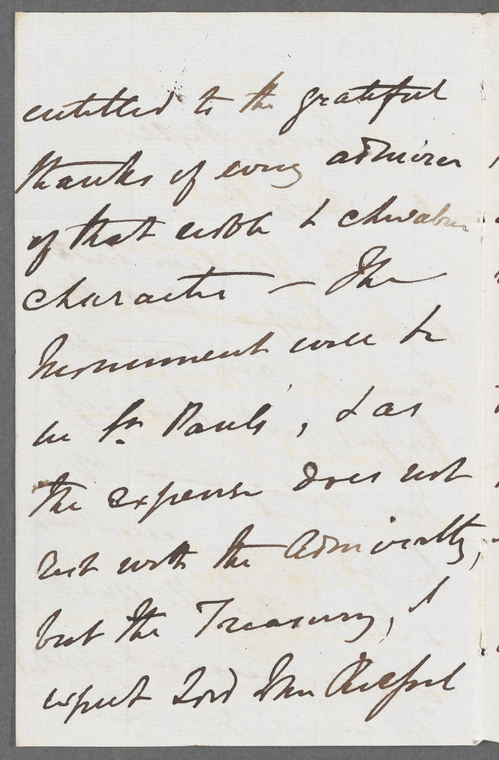 entitled to the grateful
thanks of every admirer
of that noble & chivalrous
character – The
Monument will be
in St. Pauls', & as
the expense does not
rest with the Admiralty,
but the Treasury, I
expect Lord John Russel